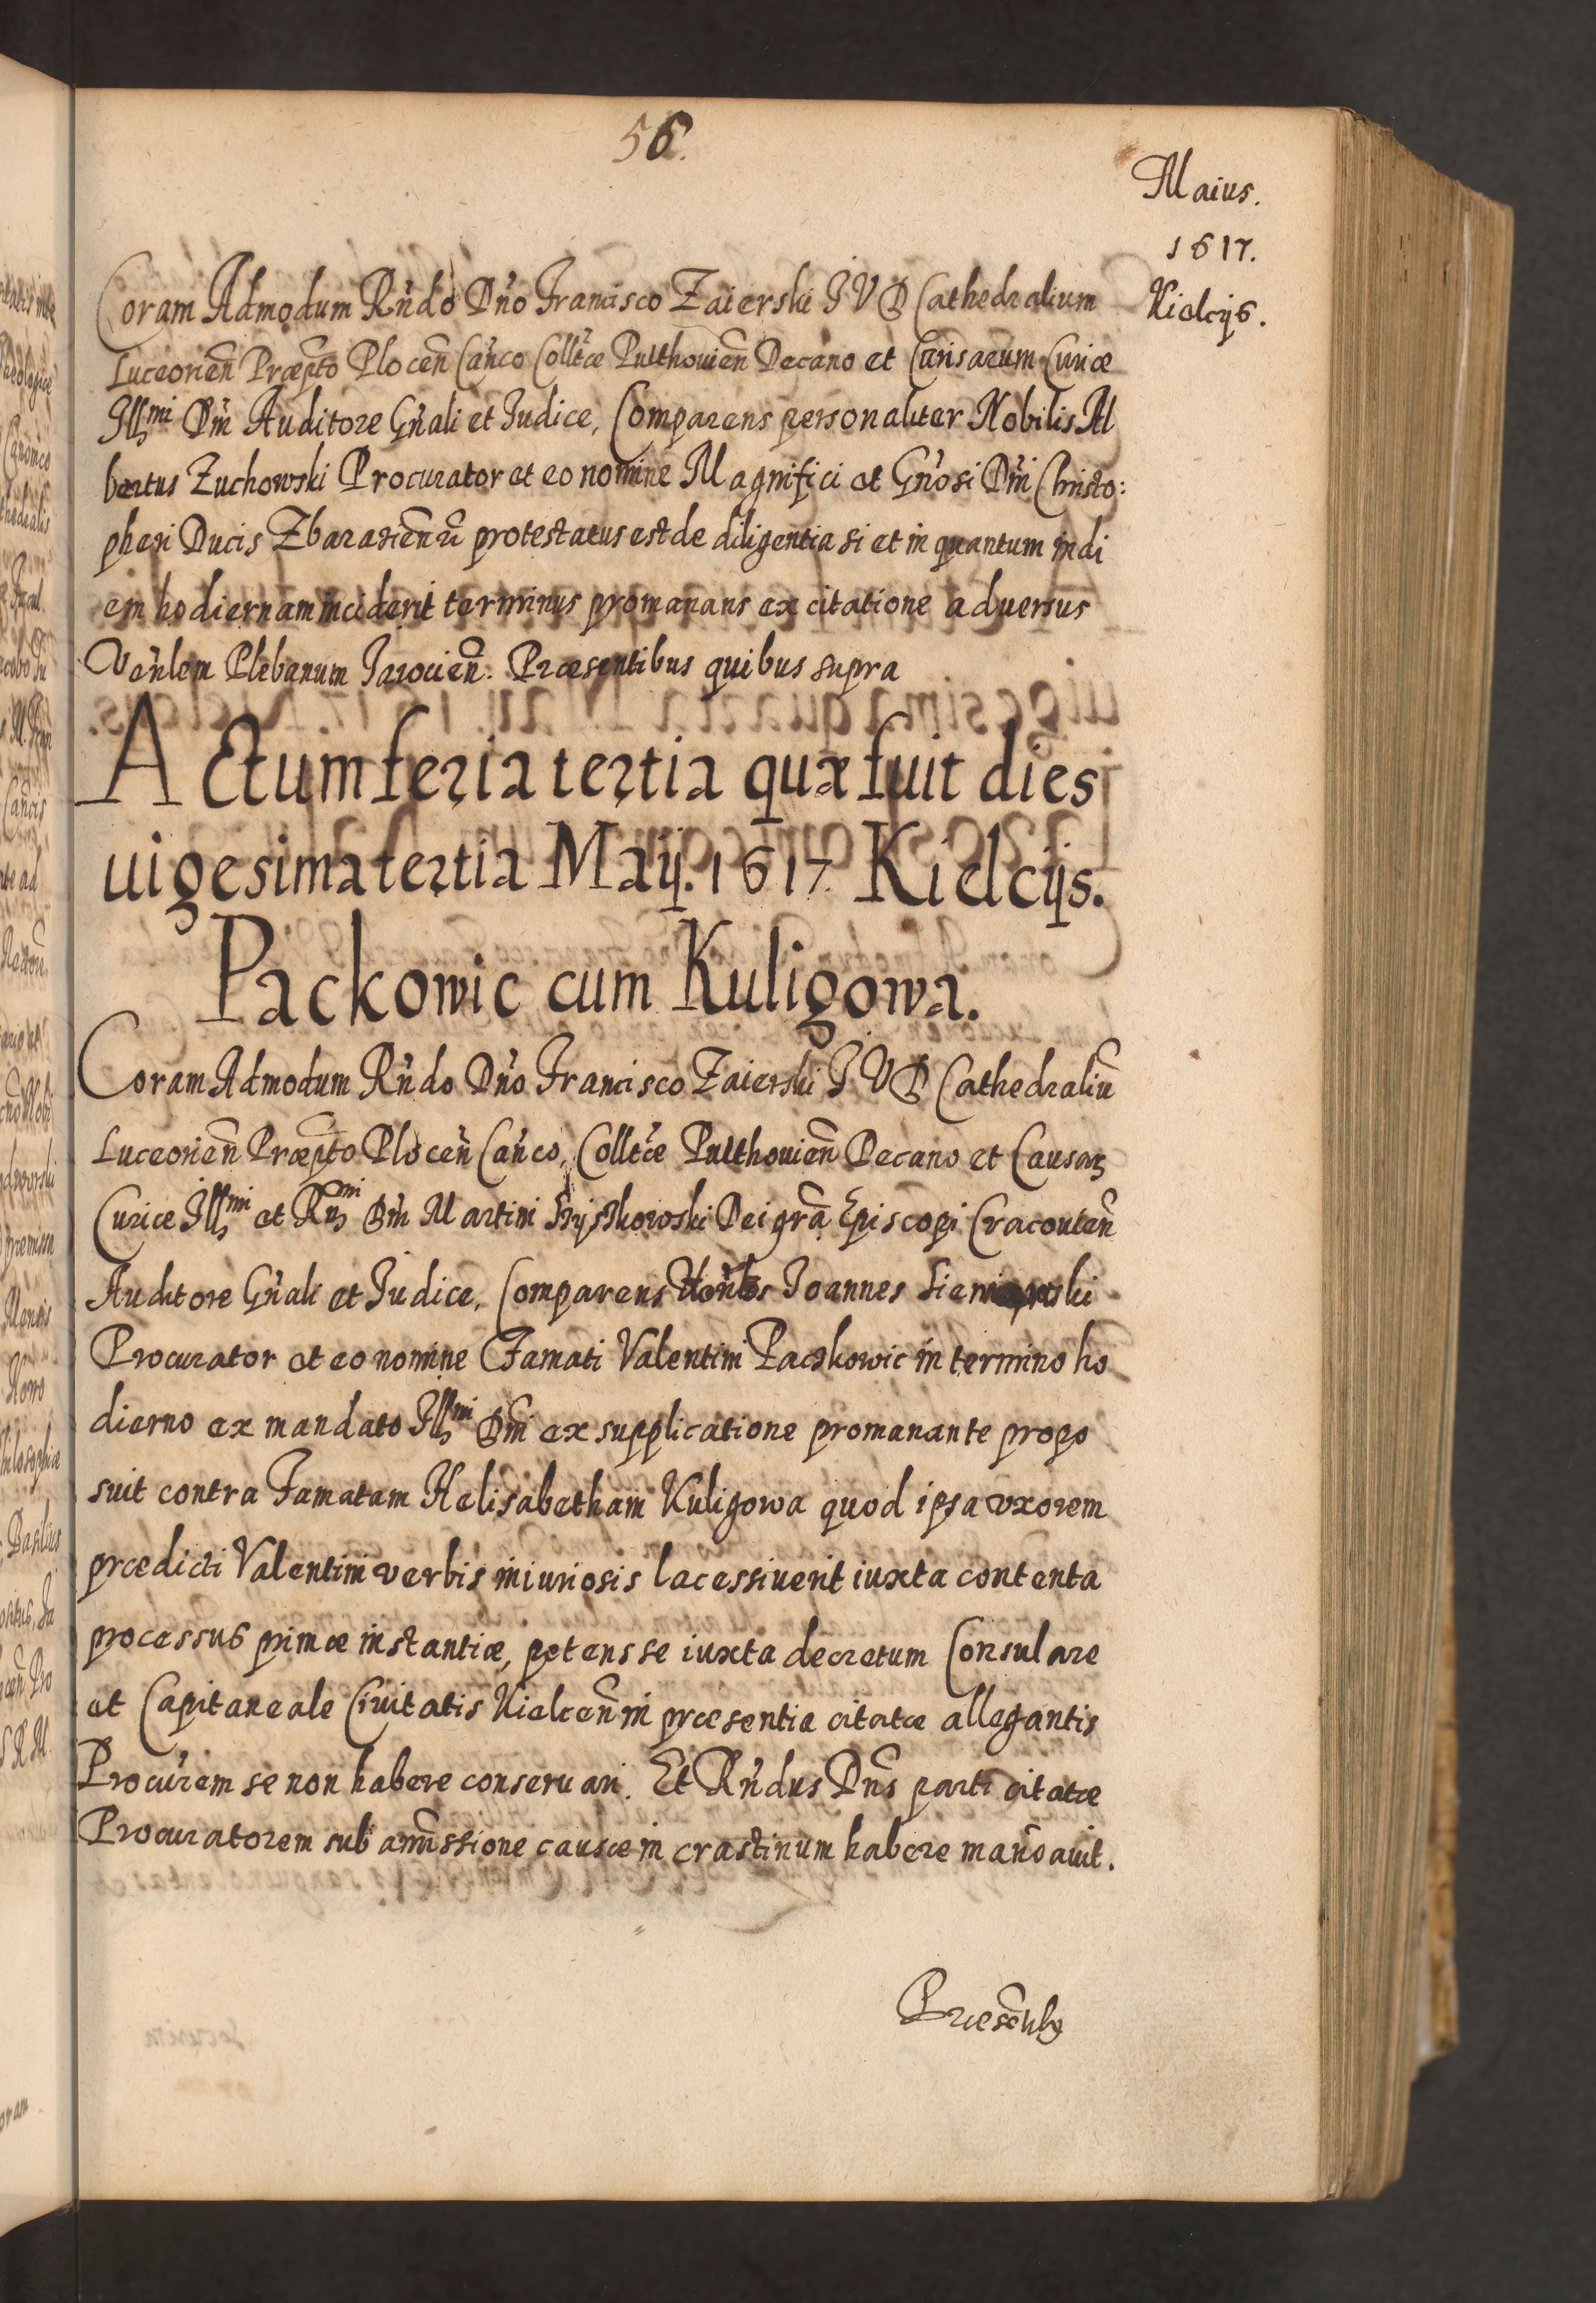 56.
Maius.
1617.
Kielcijs.
Coram Admodum Rñdo Dño Francisco Zaierski I V D Cathedralium
Luceorieñ Præpto Ploceñ Cañco Colltæ Pulthouieñ Decano et Causarum Curiæ
Illmi Dñi Auditore Gñali et Iudice, Comparens personaliter Nobilis Al
bertus Zuchowski Procurator et eo nomine Magnifici et Gñosi Dñi Christo:
pheri Ducis Zbarasieñ protestatus est de diligentia si et in quantum in di
em hodiernam inciderit terminus promanans ex citatione aduersus
Veñlem Plebanum Jarocieñ. Præsentibus quibus supra
Actum feria tertia quæ fuit dies
uigesima tertia Maij. 1617. Kielcijs.
Packowic cum Kuligowa.
Coram Admodum Rñdo Dño Francisco Zaierski I V D Cathedraliũ
Luceorieñ Præpto Ploceñ Cañco, Colltæ Pulthouieñ Decano et Causaꝝ
Curiæ Illmi et Rmi Dñi Martini Szyszkowski Dei grã Episcopi Cracouieñ
Auditore Gñali et Iudice, Comparens Hoñlis Joannes
Procurator et eo nomine Famati Valentini Paczkowic in termino ho
dierno ex mandato Illmi Dñi ex supplicatione promanante propo
suit contra Famatam Helisabetham Kuligowa quod ipsa vxorem
prædicti Valentini verbis iniuriosis lacessiuerit iuxta contenta
processus primæ instantiæ, petens se iuxta decretum Consulare
et Capitaneale Ciuitatis Kielceñ in præsentia citatæ allegantis
Procurem se non habere conseruari. Et Rñdus Dñs parti citatæ
Procuratorem sub amissione causæ in crastinum habere mandauit.
Præsẽtibꝯ